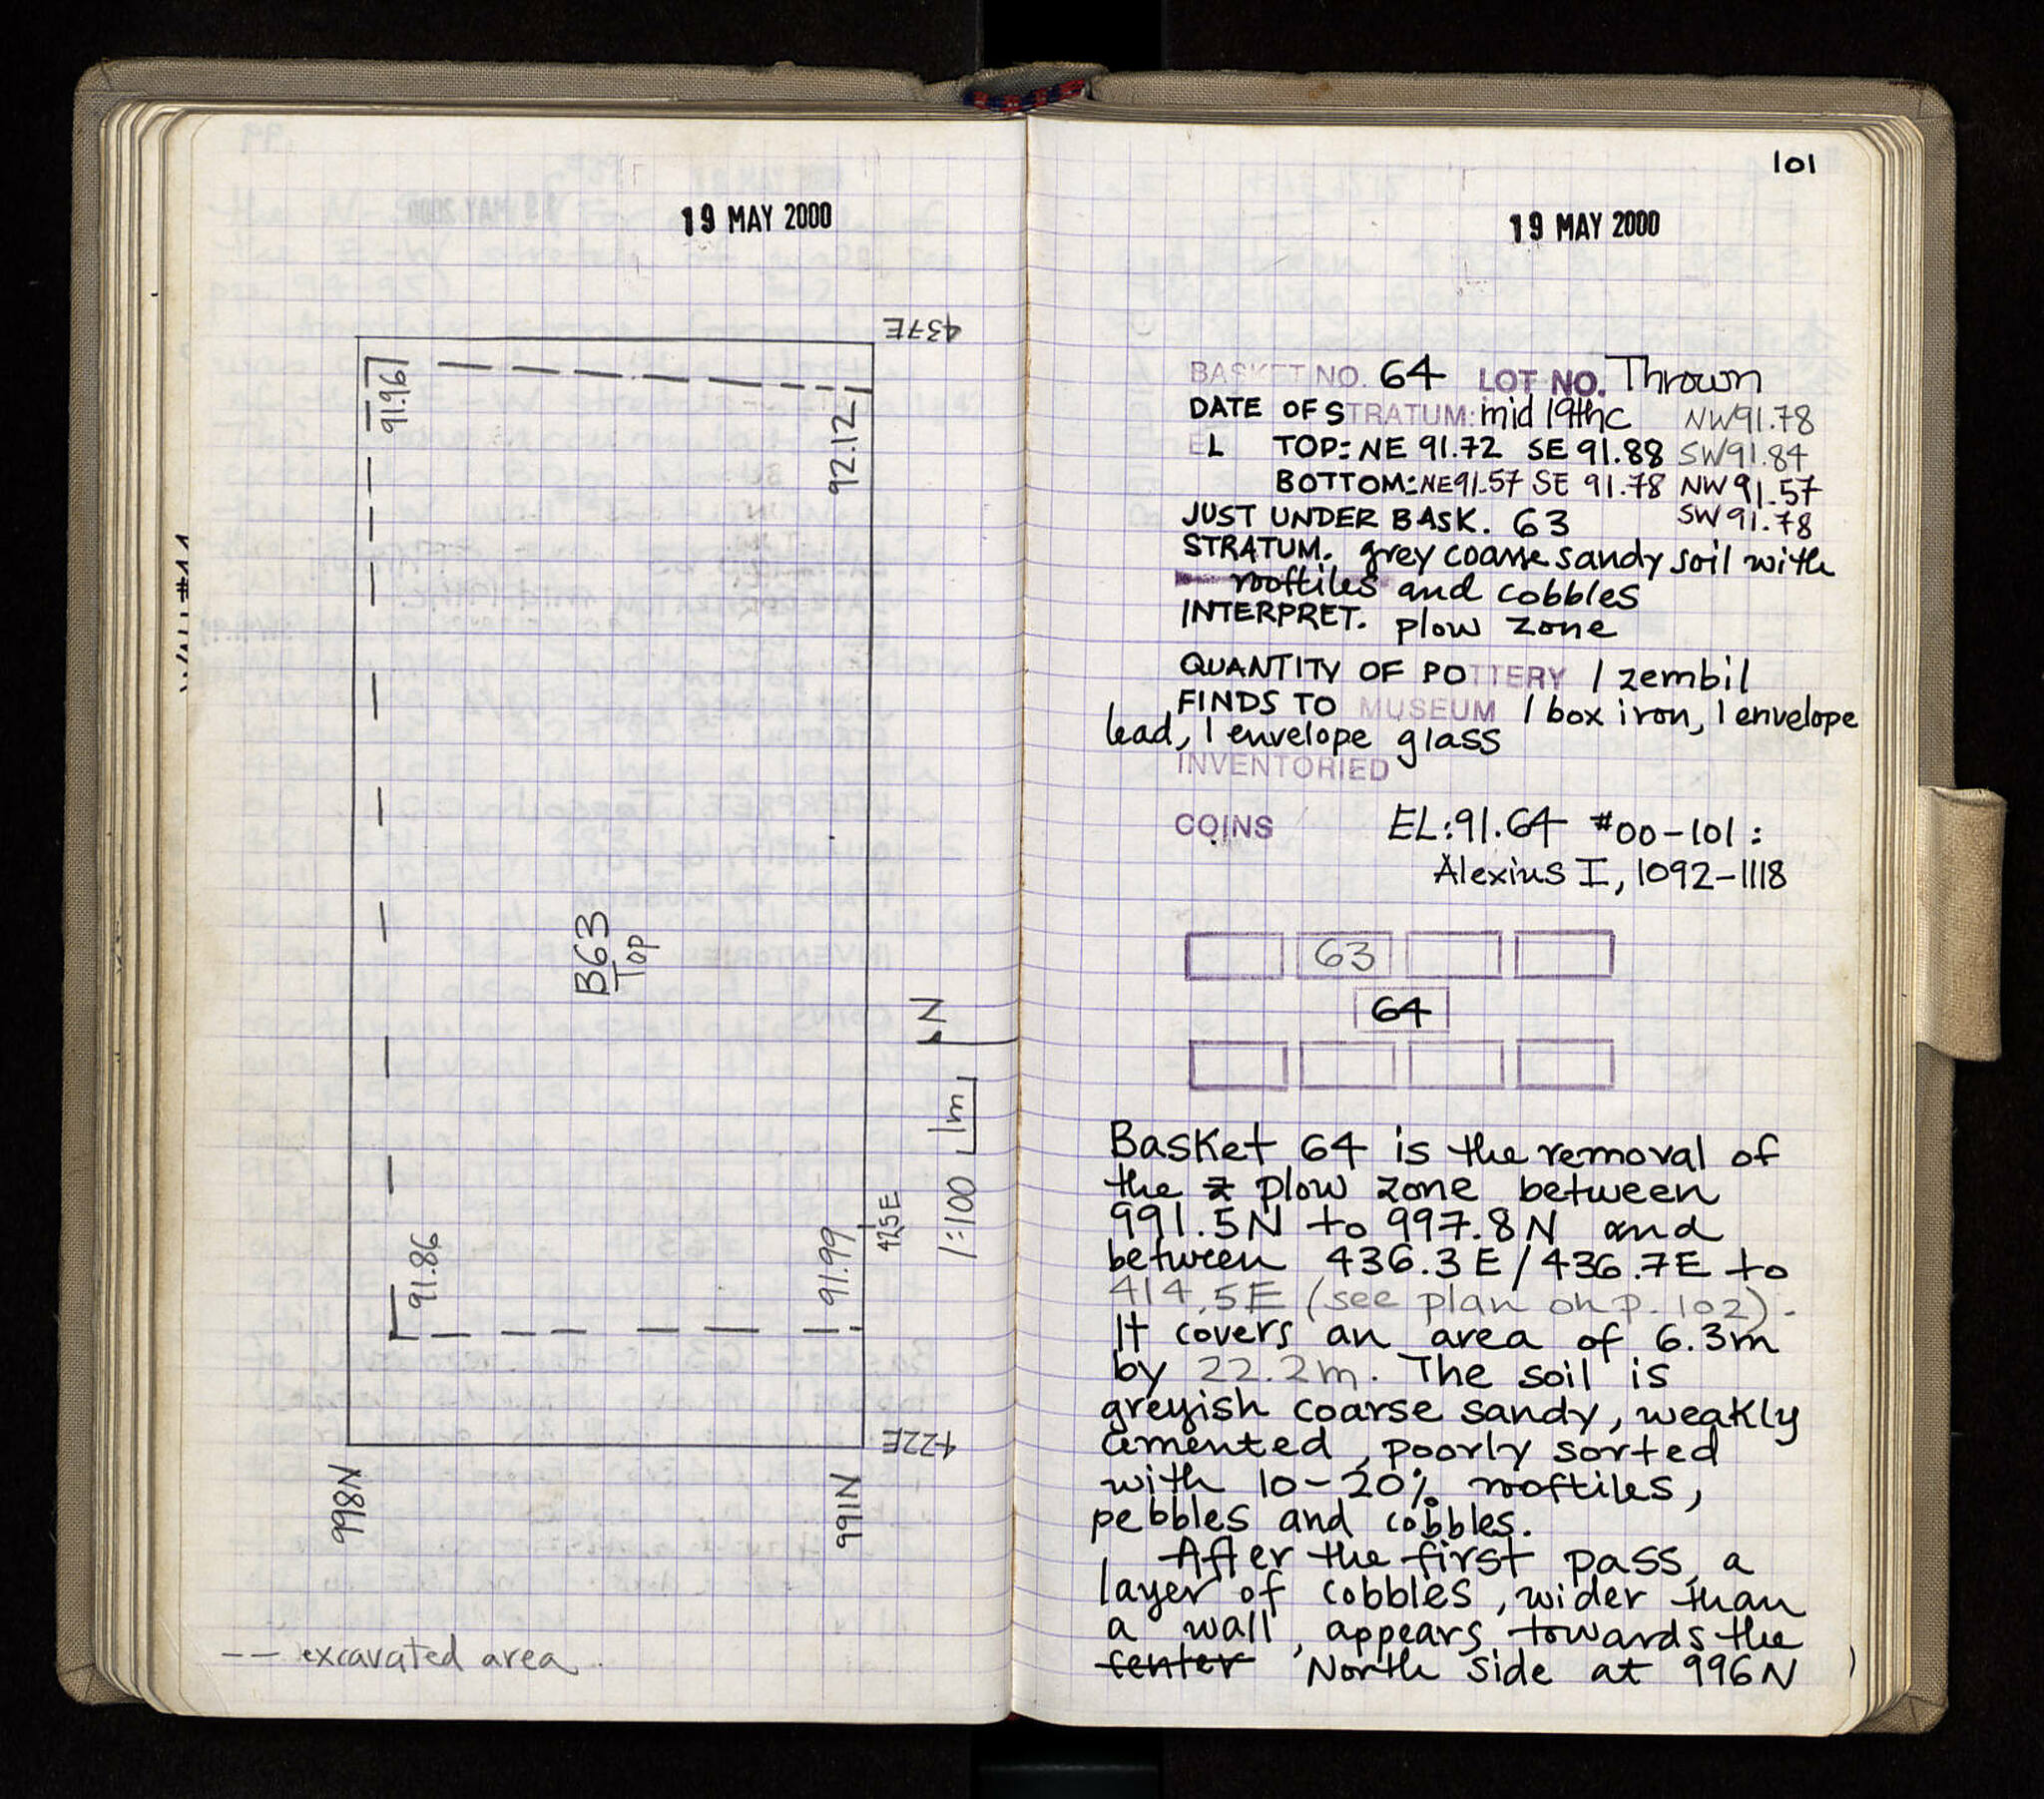 19 MAY 2000
437E
91.96
92.12
B63
Top
N
1m
1:100
425E
91.86
91.99
422E
998N
991N
-- excavated area.
101
19 MAY 2000
BASKET NO. 64 LOT NO. Thrown
DATE OF STRATUM: mid 19thc NW91.78
EL TOP: NE 91.72 SE 91.88 SW91.84
BOTTOM: NE91.57 SE 91.78 NW 91.57
JUST UNDER BASK. 63 SW 91.78
STRATUM. grey coarse sandy soil with
rooftiles and cobbles
INTERPRET. plow zone
QUANTITY OF POTTERY 1 zembil
FINDS TO MUSEUM 1 box iron, 1 envelope
lead, 1 envelope glass
INVENTORIED
COINS EL:91.64 #00-101:
Alexius I, 1092-1118
63
64
Basket 64 is the removal of
the z plow zone between
991.5N to 997.8N and
between 436.3E/436.7E to
414.5E (see plan on p. 102).
It covers an area of 6.3m
by 22.2m. The soil is
greyish coarse sandy, weakly
cemented, poorly sorted
with 10-20% rooftiles,
pebbles and cobbles.
After the first pass, a
layer of cobbles, wider than
a wall, appears towards the
center North side at 996N